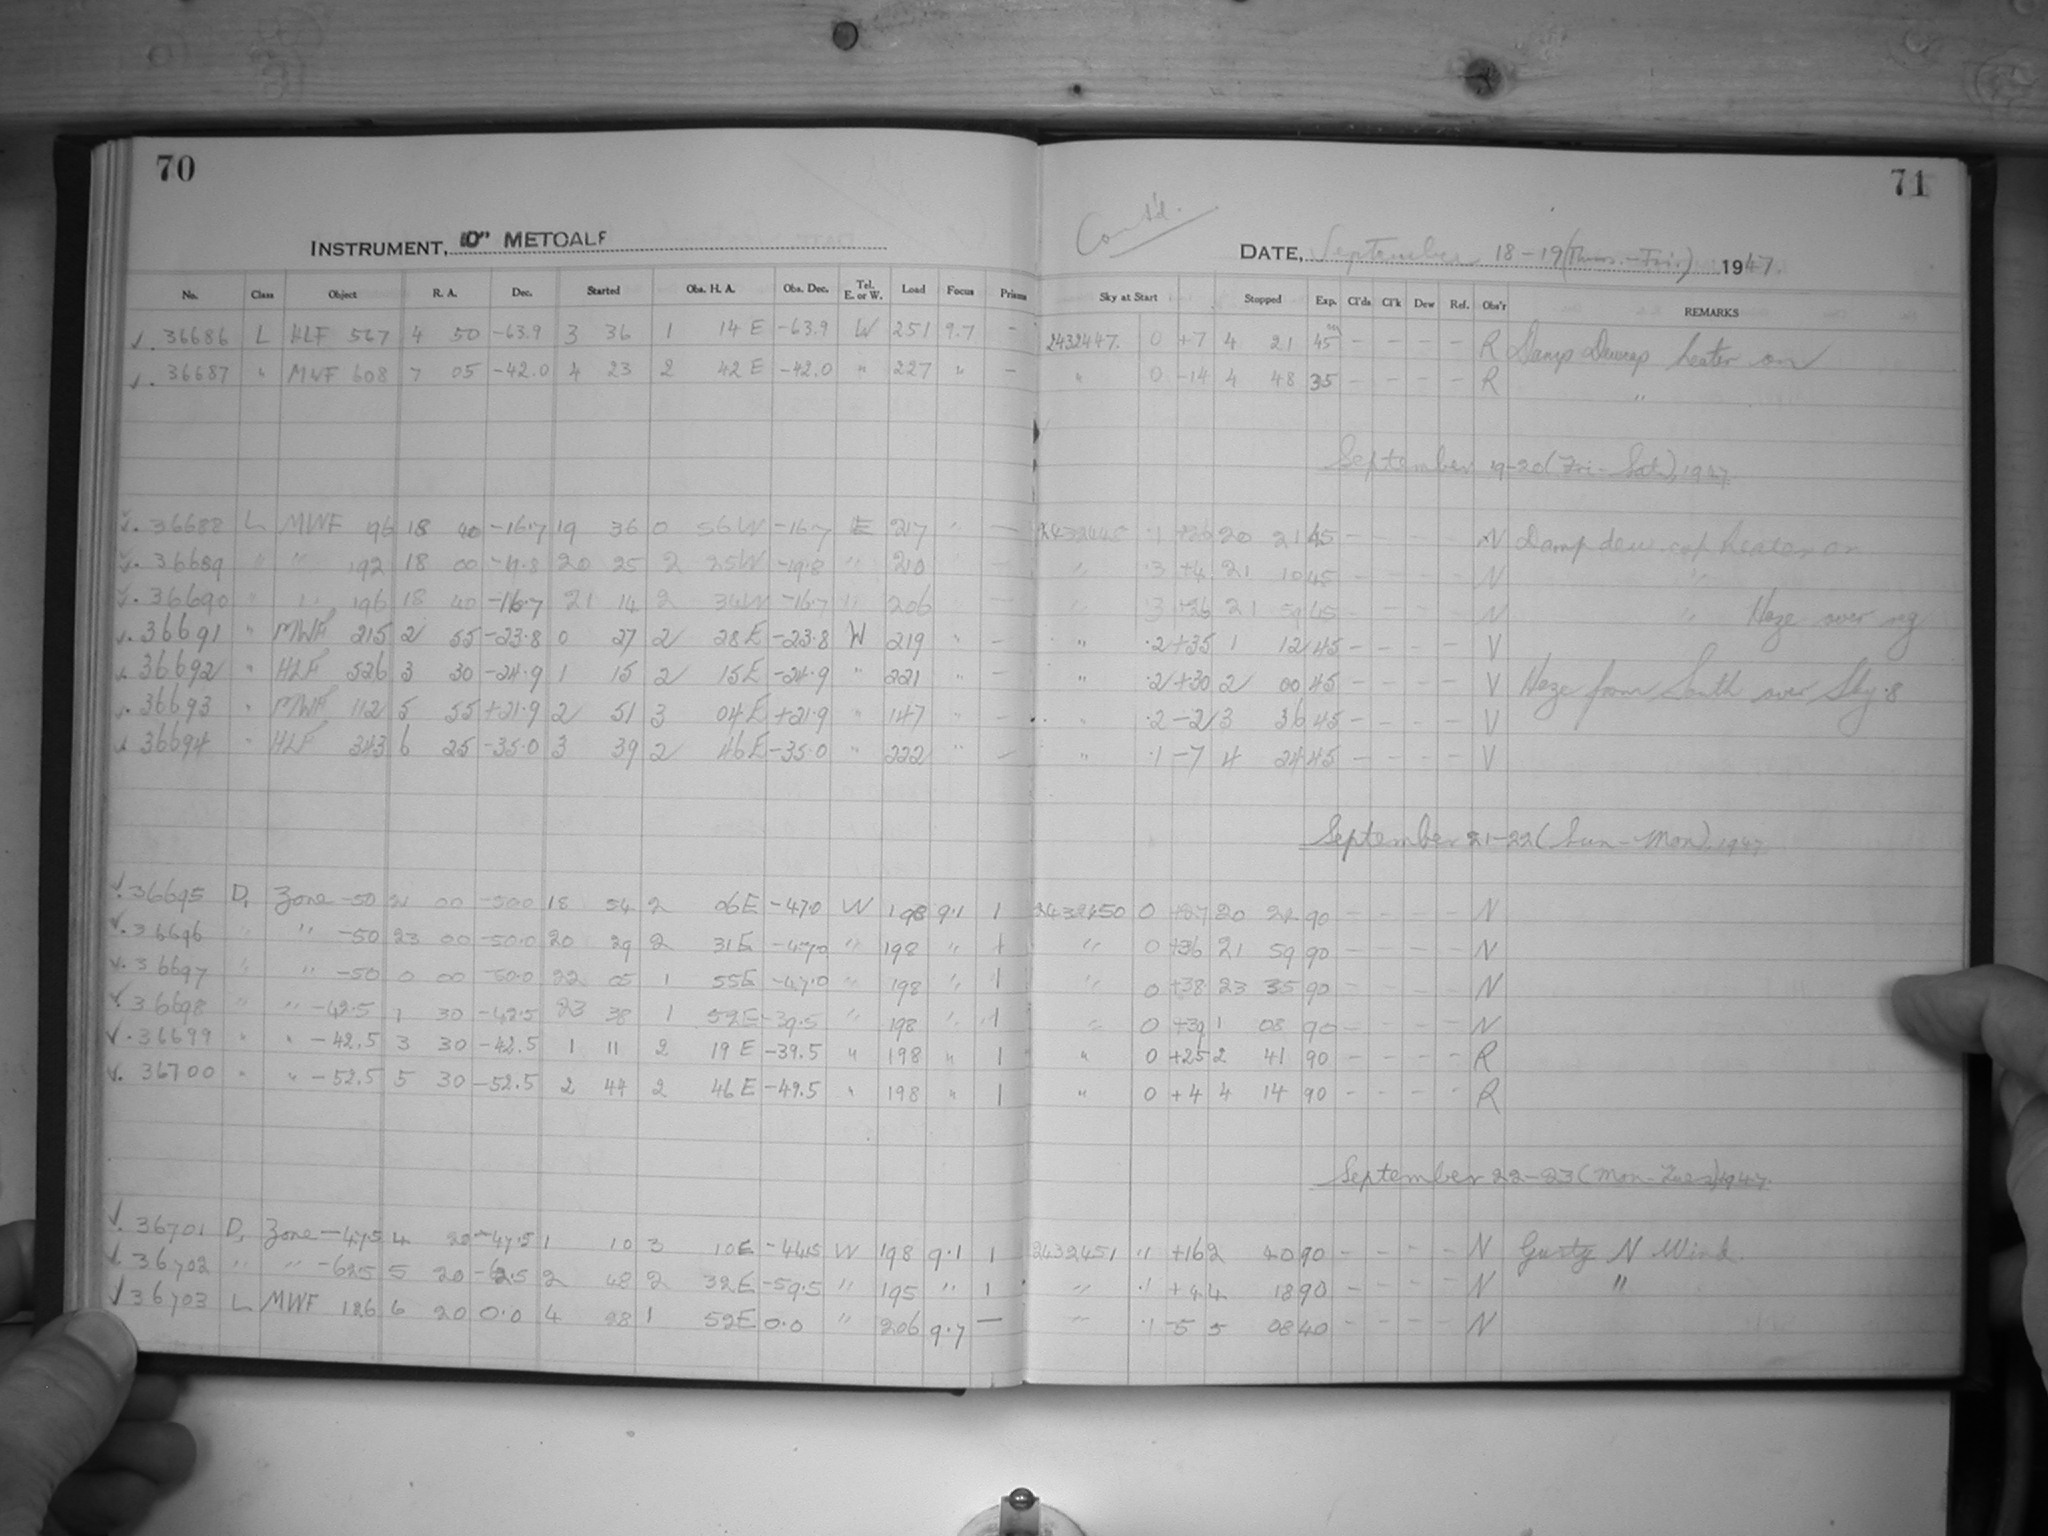 70
71
Cont'd.
INSTRUMENT, 10" METCALF
DATE, September 18-19 (Thurs.-Fri) 1947.
No. Class Object R. A. Dec. Started Obs. H. A. Obs. Dec. Tel. E. or W. Load Focus Prisms Sky at Start Stopped Exp. Cl'ds Cl'k Dew Ref. Obs'r REMARKS
√. 36686 L HLF 567 4 50 -63.9 3 36 1 14 E -63.9 W 251 9.7 - 2432447. 0 +7 4 21 45m - - - - R Damp Dewcap heater on
√. 36687 " MWF 608 7 05 -42.0 4 23 2 42 E -42.0 " 227 " - " 0 -14 4 48 35 - - - - R "
September 19-20 (Fri-Sat), 1947.
√. 36688 L MWF 196 18 40 -16.7 19 36 0 56 W -16.7 E 217 " - 2432448 .1 +26 20 21 45 - - - - N Damp dew cap heater on
√. 36689 " " 192 18 00 -19.8 20 25 2 25 W -19.8 " 210 - " .3 +4 21 10 45 - - - - N "
√. 36690 " " 196 18 40 -16.7 21 14 2 34 W -16.7 " 206 - " .3 +26 21 59 45 - - - - N " Haze over reg
√. 36691 " MWF 215 2 55 -23.8 0 27 2 28 E -23.8 W 219 " - " .2 +35 1 12 45 - - - - V
√. 36692 " HLF 526 3 30 -24.9 1 15 2 15 E -24.9 " 221 " - " .2 +30 2 00 45 - - - - V Haze from South over Sky .8
√. 36693 " MWF 112 5 55 +21.9 2 51 3 04 E +21.9 " 147 " - " .2 -2 3 36 45 - - - - V
√ 36694 " HLF 343 6 25 -35.0 3 39 2 46 E -35.0 " 222 " - " .1 -7 4 24 45 - - - - V
September 21-22 (Sun-Mon), 1947.
√. 36695 D, Zone -50 21 00 -50.0 18 54 2 06 E -47.0 W 198 9.1 1 2432450 0 +27 20 24 90 - - - - N
√. 36696 " " -50 23 00 -50.0 20 29 2 31 E -47.0 " 198 " 1 " 0 +36 21 59 90 - - - - N
√. 36697 " " -50 0 00 -50.0 22 05 1 55 E -47.0 " 198 " 1 " 0 +38 23 35 90 - - - - N
√ 36698 " " -42.5 1 30 -42.5 23 38 1 52 E -39.5 " 198 " 1 " 0 +39 1 08 90 - - - - N
√. 36699 " " -42.5 3 30 -42.5 1 11 2 19 E -39.5 " 198 " 1 " 0 +25 2 41 90 - - - - R
√. 36700 " " -52.5 5 30 -52.5 2 44 2 46 E -49.5 " 198 " 1 " 0 +4 4 14 90 - - - - R
September 22-23 (Mon-Tues) 1947.
√. 36701 D, Zone -47.5 4 20 -47.5 1 10 3 10 E -44.5 W 198 9.1 1 2432451 .1 +16 2 40 90 - - - - N Gusty N Wind.
√ 36702 " " -62.5 5 20 -62.5 2 48 2 32 E -59.5 " 195 " 1 " .1 +4 4 18 90 - - - - N "
√ 36703 L MWF 126 6 20 0.0 4 28 1 52 E 0.0 " 206 9.7 - " .1 -5 5 08 40 - - - - N